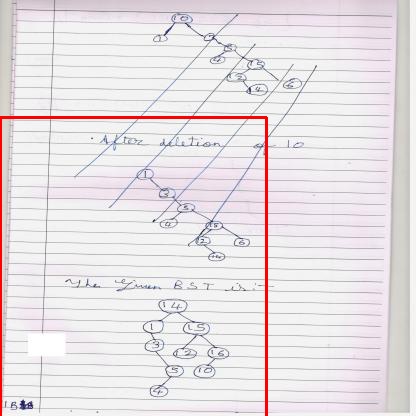 10
1
5
4
15
12
6
14
After deletion of 10
1
3
5
4
15
12
6
14
The Given BST is:-
14
1 15
3 12 16
5 10
4